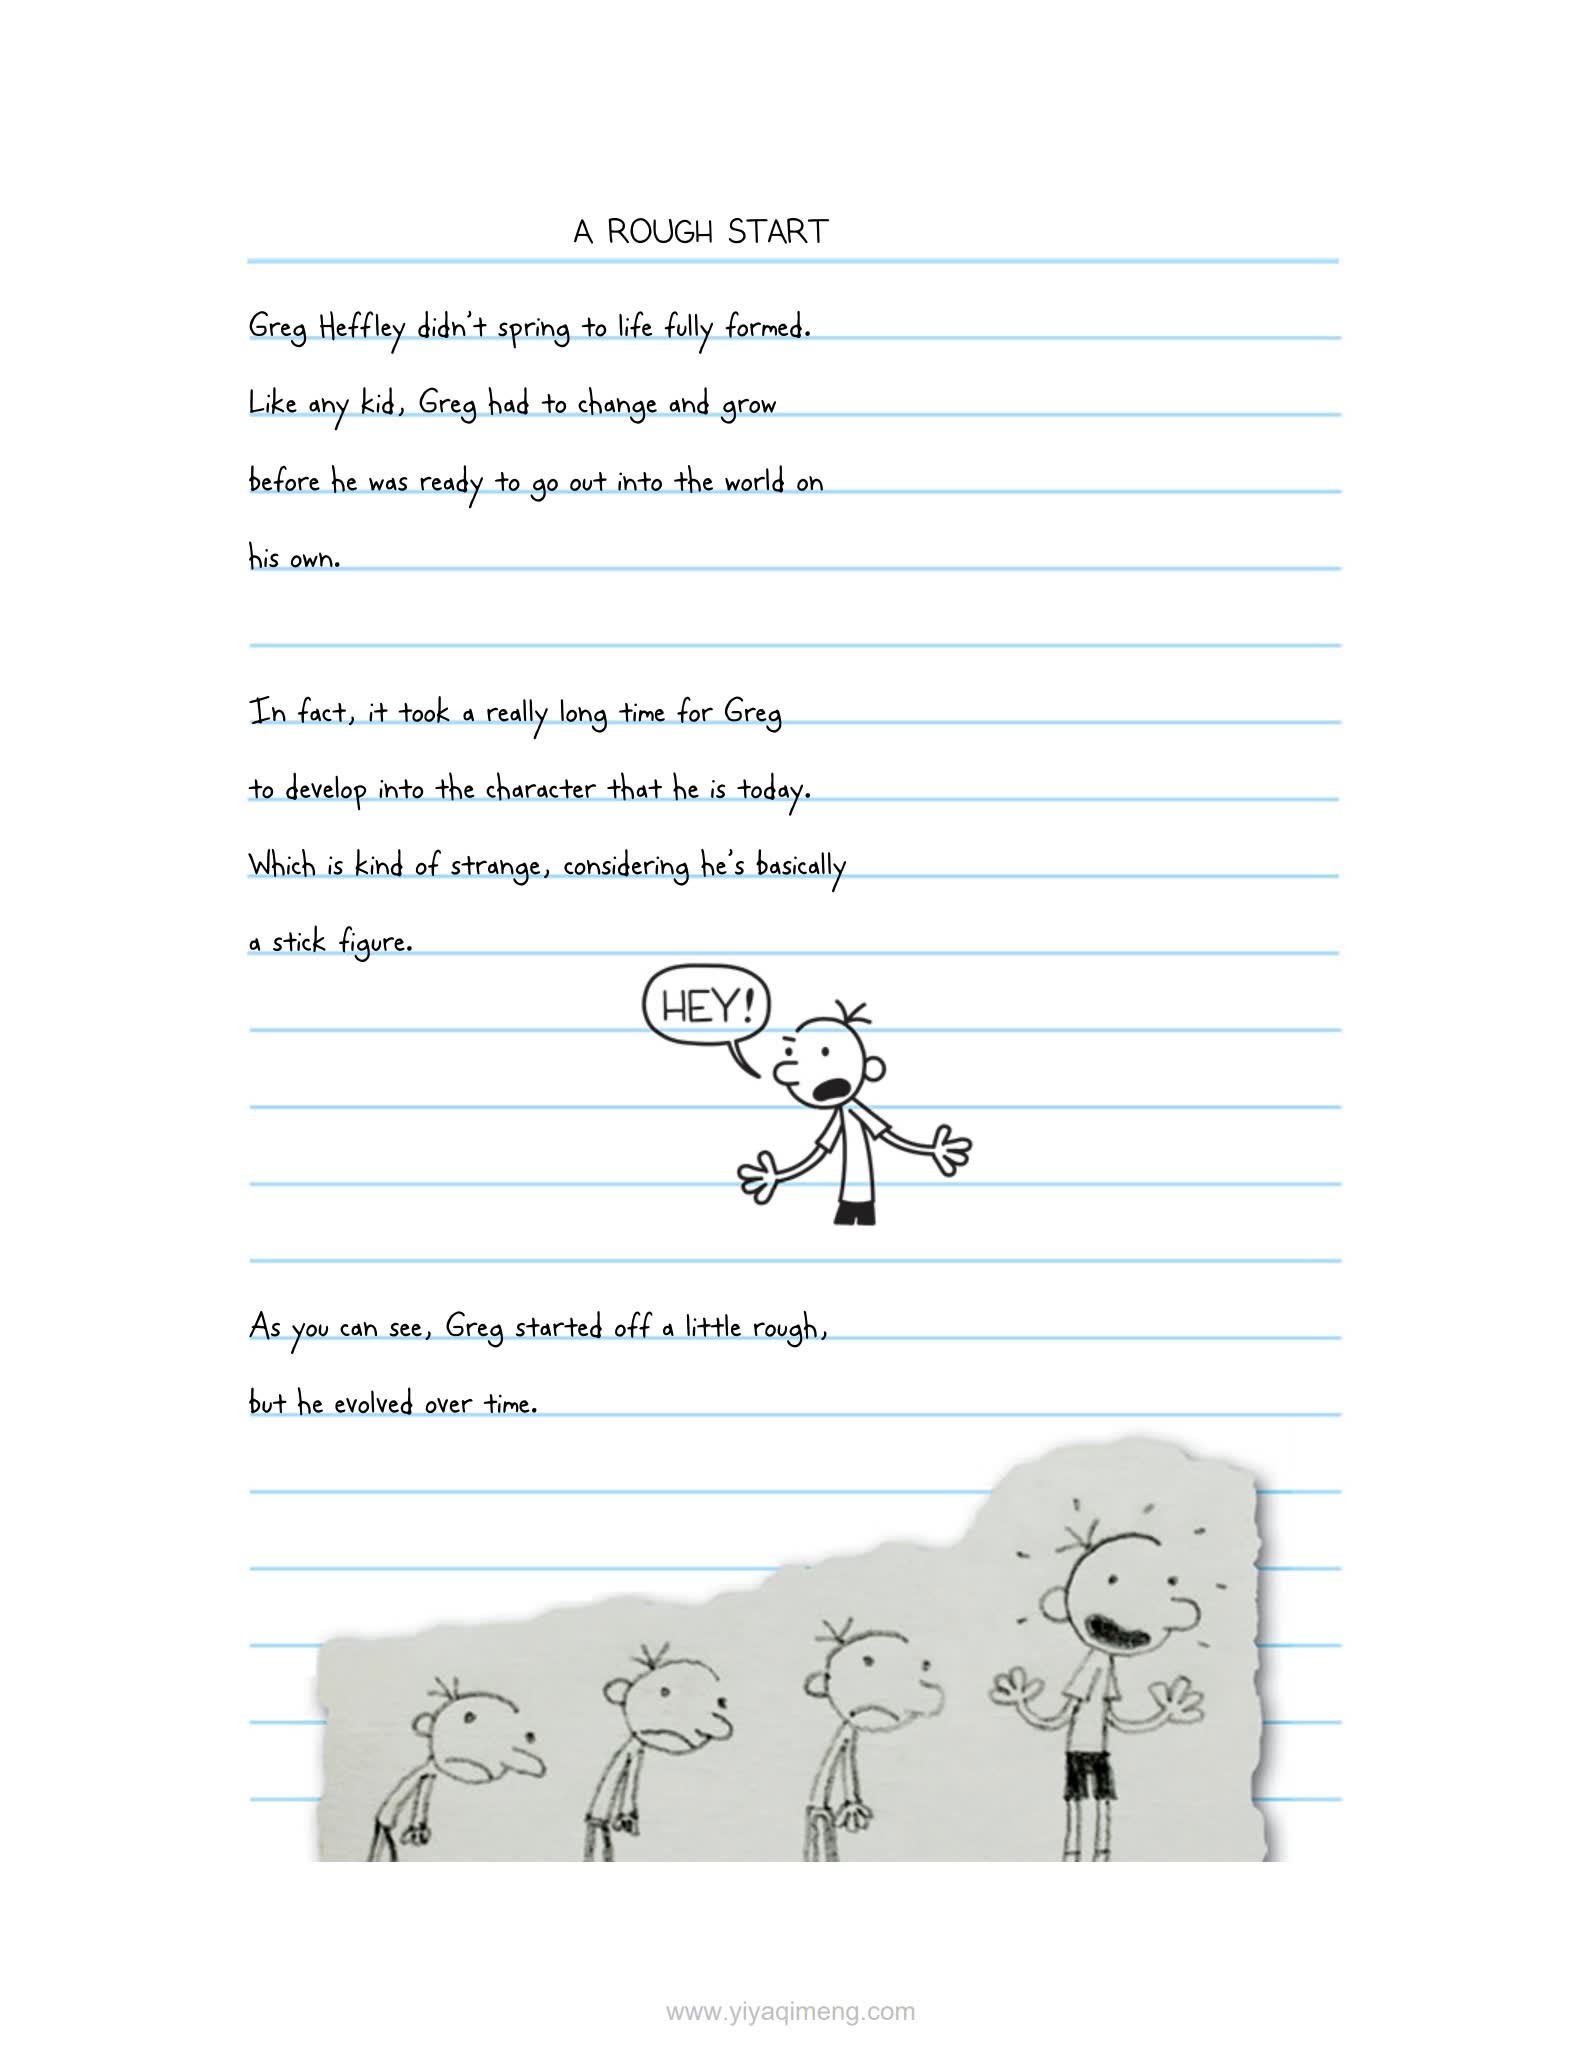 A ROUGH START
Greg Heffley didn't spring to life fully formed.
Like any kid, Greg had to change and grow
before he was ready to go out into the world on
his own.
In fact, it took a really long time for Greg
to develop into the character that he is today.
Which is kind of strange, considering he's basically
a stick figure.
HEY!
As you can see, Greg started off a little rough,
but he evolved over time.
www.yiyaqimeng.com